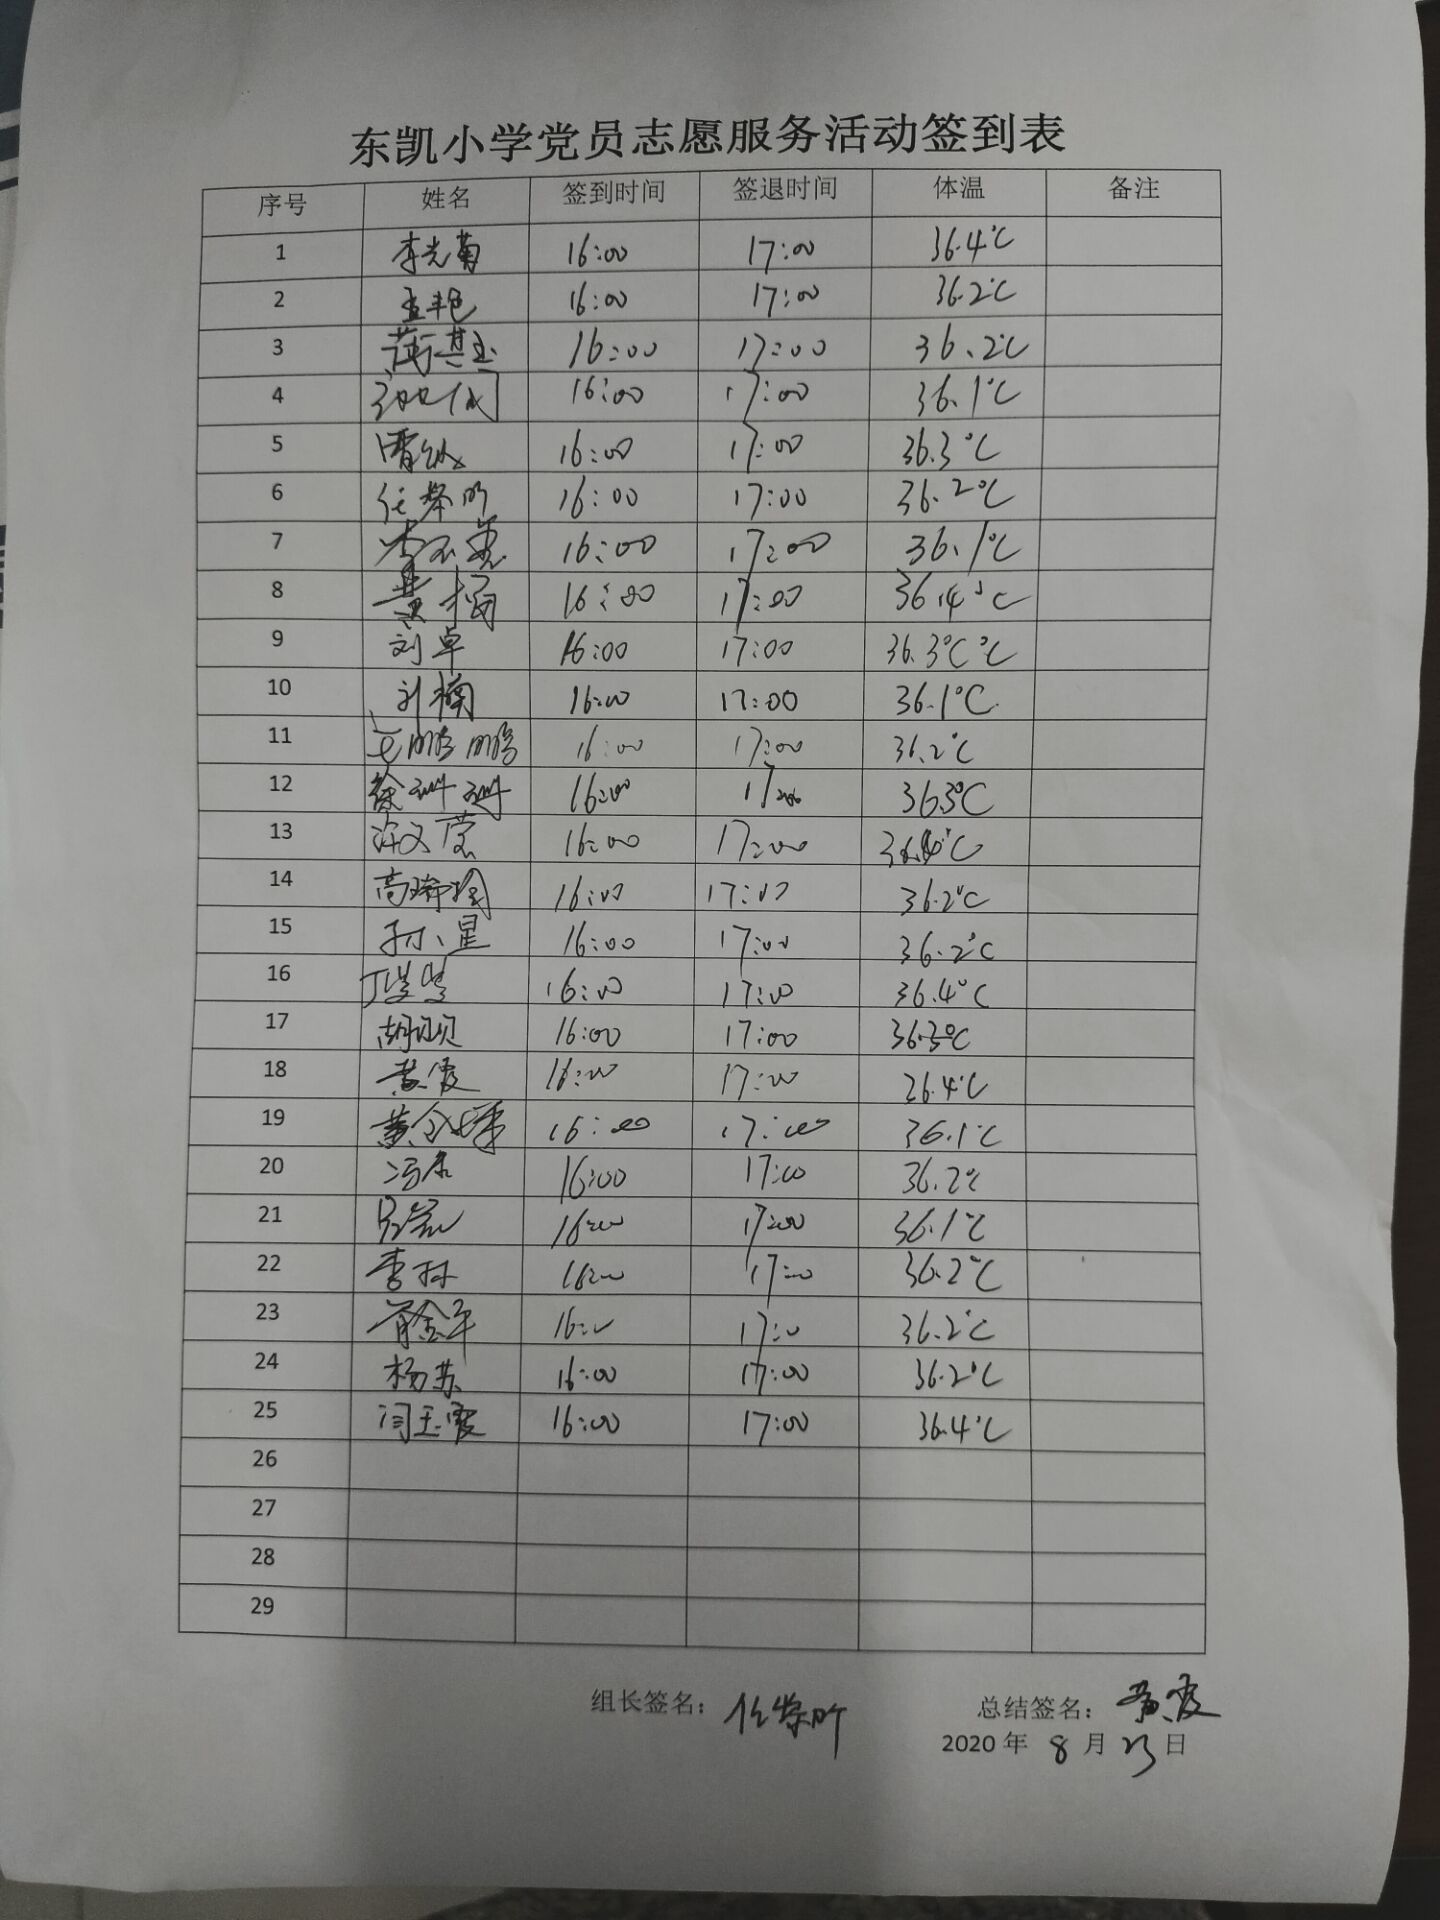 东凯小学党员志愿服务活动签到表
序号 姓名 签到时间 签退时间 体温 备注
1 李光菊 16:00 17:00 36.4℃
2 孟艳 16:00 17:00 36.2℃
3 16:00 17:00 36.2℃
4 16:00 17:00 36.1℃
5 16:00 17:00 36.3℃
6 任荣昕 16:00 17:00 36.2℃
7 16:00 17:00 36.1℃
8 黄楠 16:00 17:00 36.4℃
9 刘卓 16:00 17:00 36.3℃℃
10 刘楠 16:00 17:00 36.1℃
11 16:00 17:00 36.2℃
12 徐珊珊 16:00 17:00 36.3℃
13 许文莹 16:00 17:00
14 16:00 17:00 36.2℃
15 孙星 16:00 17:00 36.2℃
16 16:00 17:00 36.4℃
17 胡贝贝 16:00 17:00 36.3℃
18 黄霞 16:00 17:00 26.4℃
19 16:00 17:00 36.1℃
20 16:00 17:00 36.2℃
21 16:00 17:00 36.1℃
22 李林 16:00 17:00 36.2℃
23 16:00 17:00 36.2℃
24 杨苏 16:00 17:00 36.2℃
25 闫玉霞 16:00 17:00 36.4℃
26
27
28
29
组长签名：任荣昕 总结签名：黄霞
2020年8月23日